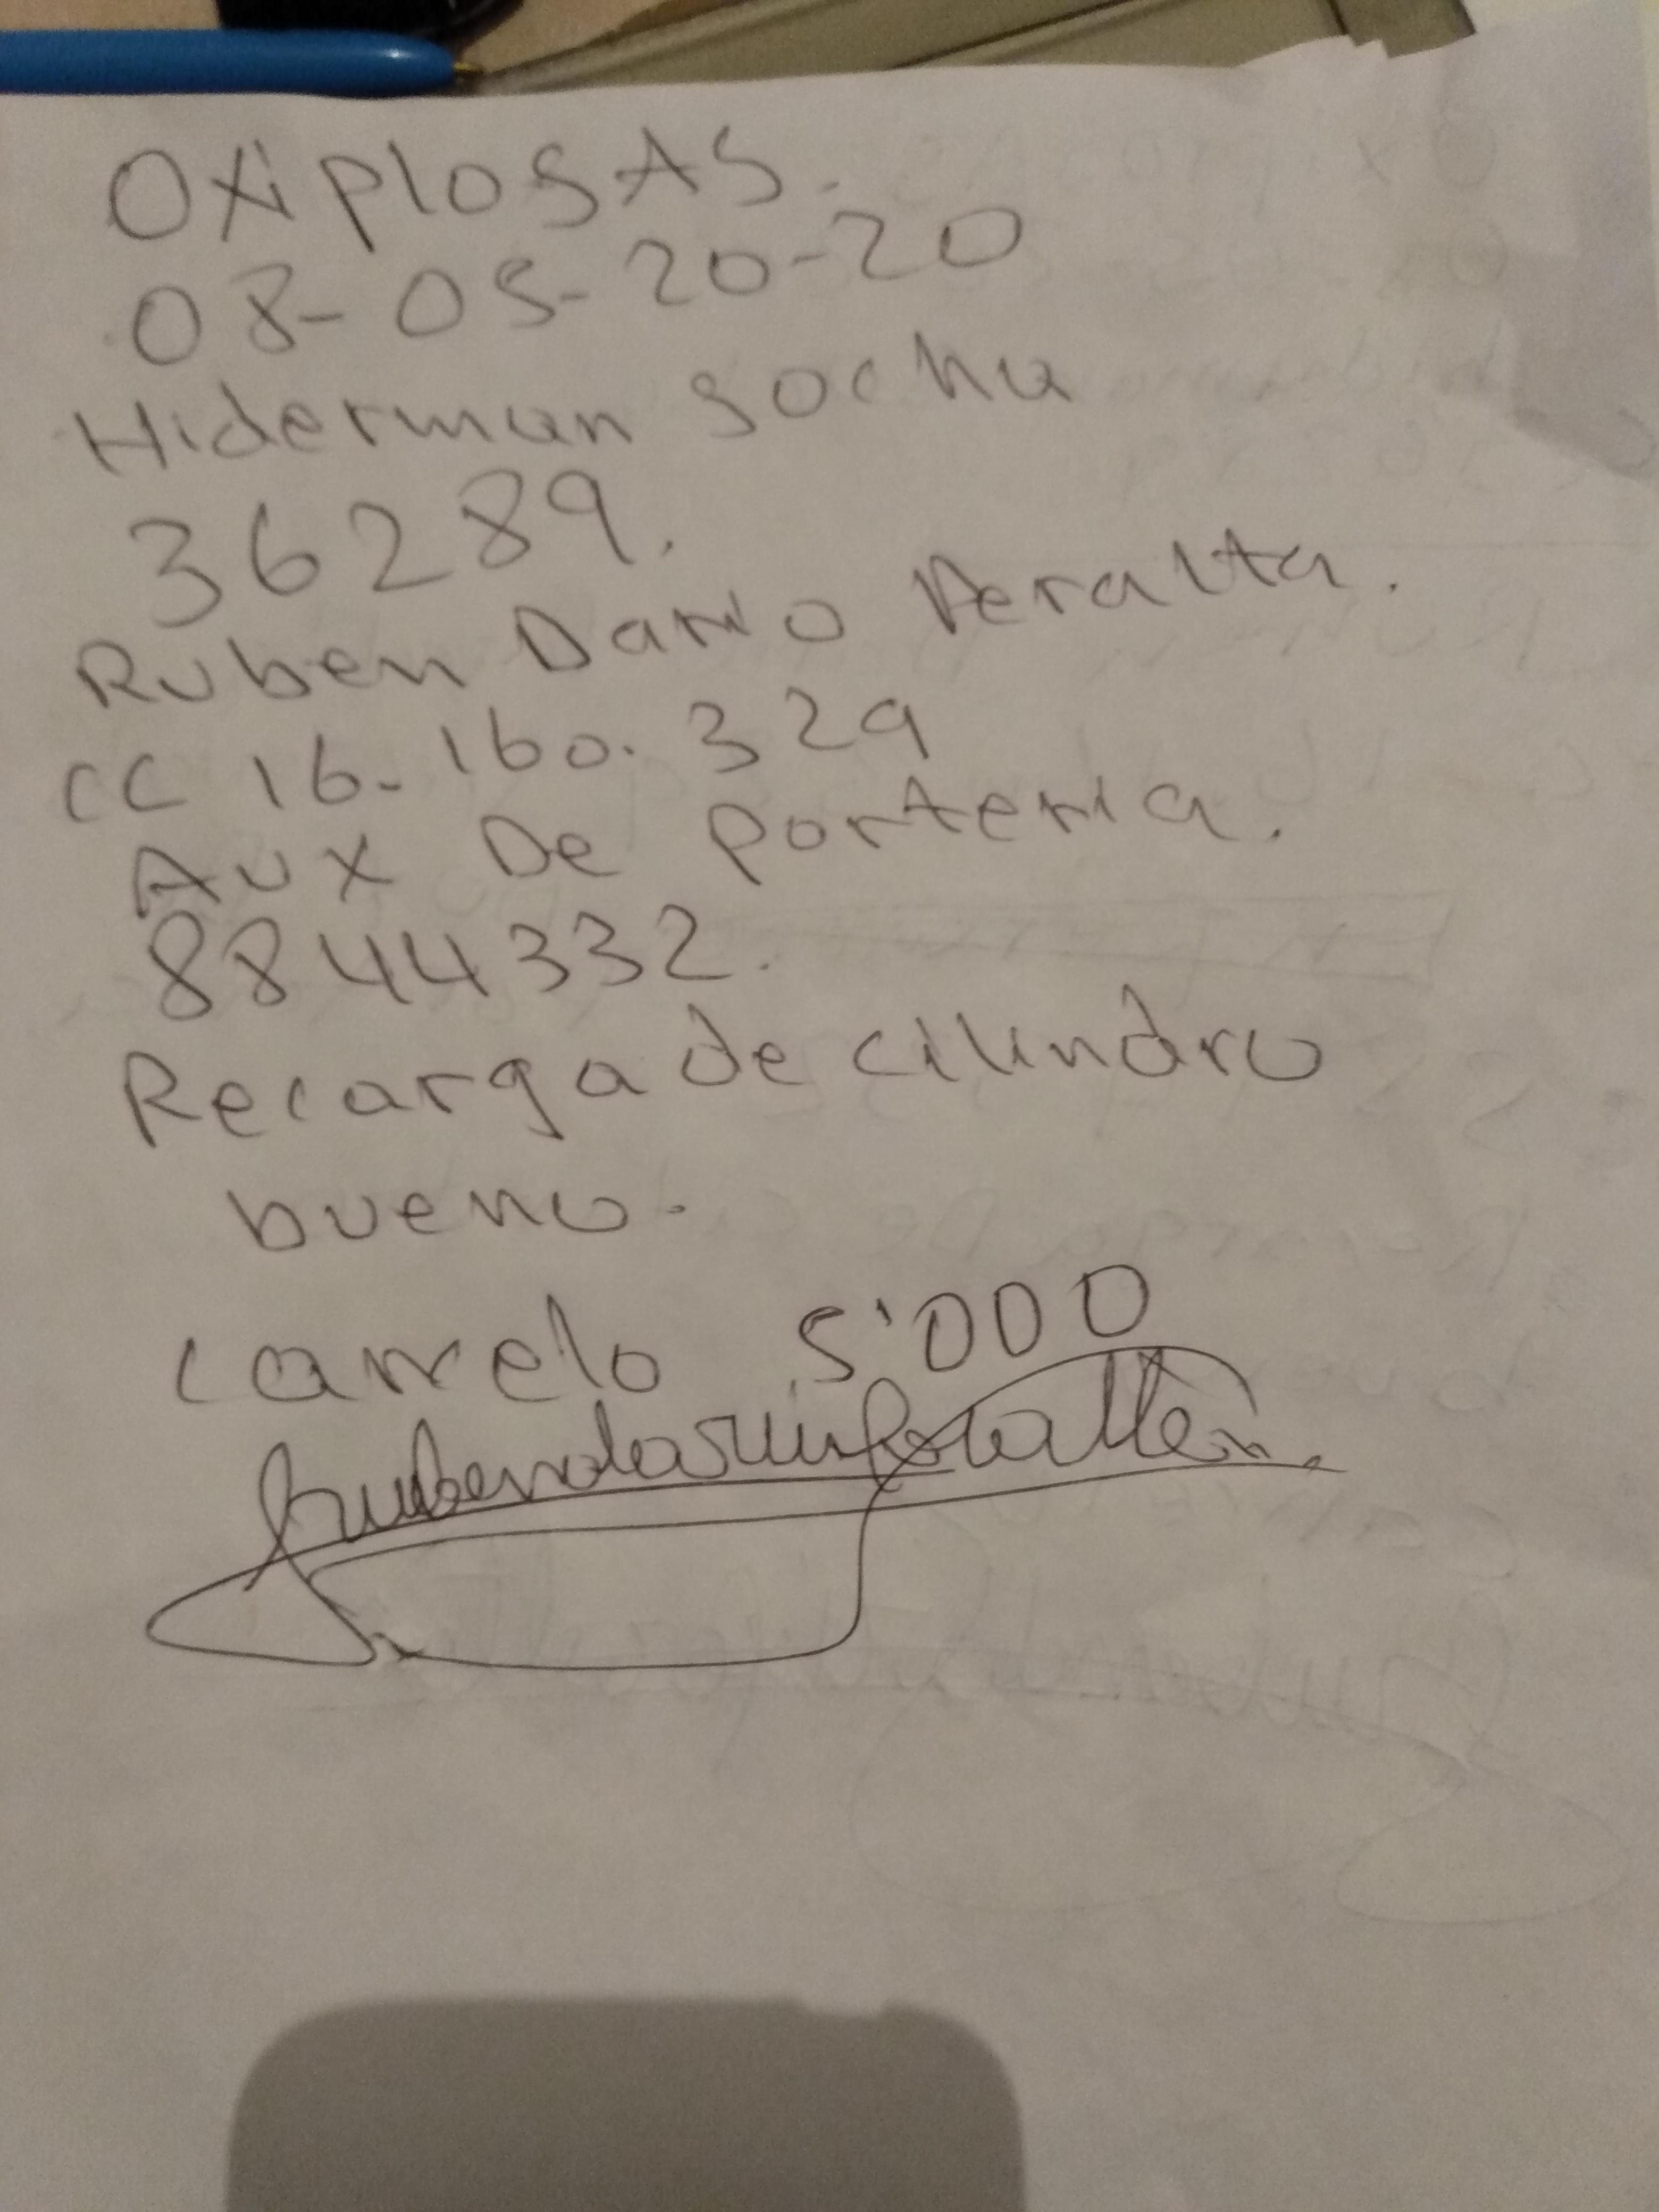 OXiplo SAS.
08-05-20-20
Hiderman socha
36289.
Ruben Dario Peralta.
CC 16.160.329
Aux De porteria.
8844332.
Recarga de cilindro
bueno.
carrelo 5'000